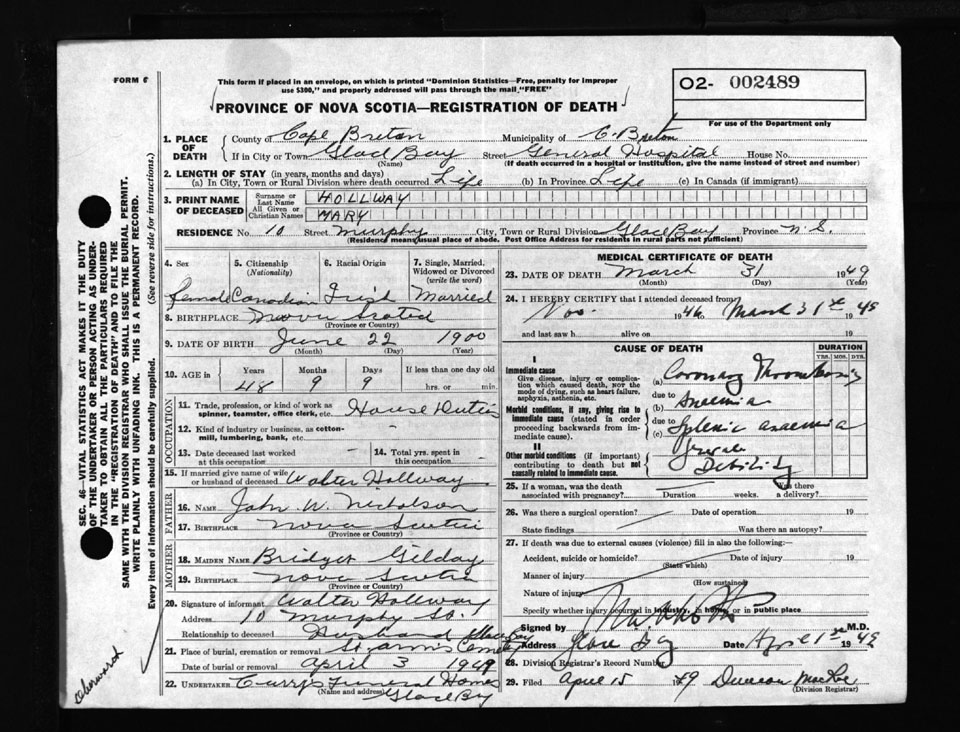 FORM 6
This form if placed in an envelope, on which is printed "Dominion Statistics—Free, penalty for improper
use $300," and properly addressed will pass through the mail "FREE"
PROVINCE OF NOVA SCOTIA—REGISTRATION OF DEATH
O2- 002489
For use of the Department only
SEC. 46—VITAL STATISTICS ACT MAKES IT THE DUTY
OF THE UNDERTAKER OR PERSON ACTING AS UNDER-
TAKER TO OBTAIN ALL THE PARTICULARS REQUIRED
IN THE "REGISTRATION OF DEATH" AND TO FILE THE
SAME WITH THE DIVISION REGISTRAR WHO SHALL ISSUE THE BURIAL PERMIT.
WRITE PLAINLY WITH UNFADING INK. THIS IS A PERMANENT RECORD.
Every item of information should be carefully supplied. (See reverse side for instructions.)
1. PLACE OF DEATH County of Cape Breton Municipality of C. Breton
If in City or Town Glace Bay Street General Hospital House No.
(Name) (If death occurred in a hospital or institution, give the name instead of street and number)
2. LENGTH OF STAY (in years, months and days)
(a) In City, Town or Rural Division where death occurred Life (b) In Province Life (c) In Canada (if immigrant)
3. PRINT NAME OF DECEASED Surname or Last Name HOLLWAY
All Given or Christian Names MARY
RESIDENCE No. 10 Street Murphy City, Town or Rural Division Glace Bay Province N. S.
(Residence means usual place of abode. Post Office Address for residents in rural parts not sufficient)
4. Sex 5. Citizenship (Nationality) 6. Racial Origin 7. Single, Married, Widowed or Divorced (write the word)
female Canadian Irish Married
8. BIRTHPLACE Nova Scotia
(Province or Country)
9. DATE OF BIRTH June 22 1900
(Month) (Day) (Year)
10. AGE in Years Months Days If less than one day old
48 9 9 hrs. or min.
OCCUPATION
11. Trade, profession, or kind of work as spinner, teamster, office clerk, etc. House Duties
12. Kind of industry or business, as cotton-mill, lumbering, bank, etc. -
13. Date deceased last worked at this occupation - 14. Total yrs. spent in this occupation -
15. If married give name of wife or husband of deceased Walter Hollway
FATHER
16. NAME John W. Nicholson
17. BIRTHPLACE Nova Scotia
(Province or Country)
MOTHER
18. MAIDEN NAME Bridget Gilday
19. BIRTHPLACE Nova Scotia
(Province or Country)
20. Signature of informant Walter Hollway
Address 10 Murphy St. Glace Bay
Relationship to deceased Husband
21. Place of burial, cremation or removal St. Anns Cemetery
Date of burial or removal April 3 1949
22. UNDERTAKER Currys Funeral Home
(Name and address) Glace Bay
MEDICAL CERTIFICATE OF DEATH
23. DATE OF DEATH March 31 1949
(Month) (Day) (Year)
24. I HEREBY CERTIFY that I attended deceased from
Nov. 1946 March 31st 1949
and last saw h alive on 19
CAUSE OF DEATH DURATION
YRS. MOS. DYS.
I
Immediate cause
Give disease, injury or complication which caused death, not the mode of dying, such as heart failure, asphyxia, asthenia, etc.
(a) Coronary Thrombosis
due to
Morbid conditions, if any, giving rise to immediate cause (stated in order proceeding backwards from immediate cause).
(b) Anaemia
due to
(c) Splenic anaemia
II
Other morbid conditions (if important) contributing to death but not causally related to immediate cause.
General
Debility
25. If a woman, was the death associated with pregnancy? Duration weeks. Was there a delivery?
26. Was there a surgical operation? Date of operation 19
State findings Was there an autopsy?
27. If death was due to external causes (violence) fill in also the following:—
Accident, suicide or homicide? Date of injury 19
(State which)
Manner of injury
(How sustained)
Nature of injury
Specify whether injury occurred in industry, in home, or in public place
Signed by M.D.
Address Glace Bay Date April 1st 1949
28. Division Registrar's Record Number
29. Filed April 15 1949 Duncan MacRae
(Division Registrar)